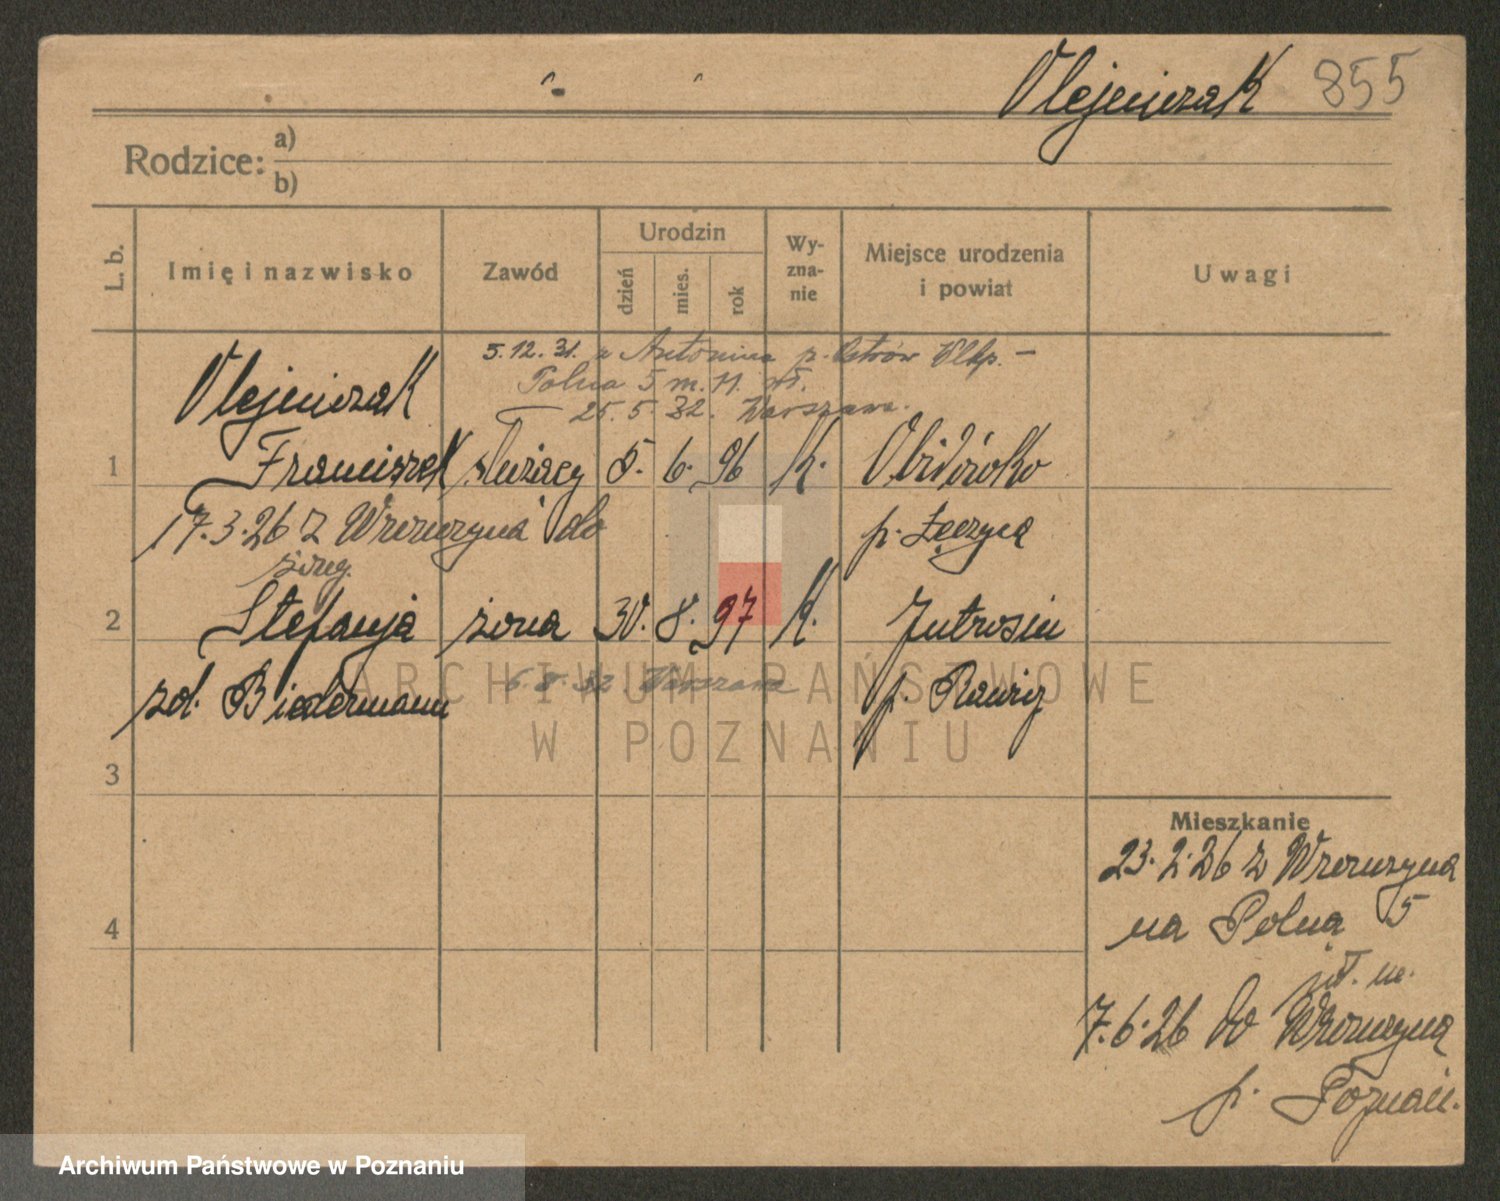 Olejniczak 855
Rodzice: a)
b)
L. b.
Imię i nazwisko
Zawód
Urodzin
dzień
mies.
rok
Wy-
zna-
nie
Miejsce urodzenia
i powiat
Uwagi
5.12.31. z Antonina p. Ostrów Wlkp. –
Polna 5 m. 11.
25.5.32. Warszawa.
Olejniczak
1 Franciszek służący 5. 6. 96 k.
17.3.26 z Wronczyna do
p. Łęczyca
2 Stefanja żona 30. 8. 97 k. Jutrosin
zd. Biedermann
6.8.32 Warszawa
p. Rawicz
3
4
Mieszkanie
23.2.26 z Wronczyna
na Polną 5
7.6.26 do Wronczyna
p. Poznań.
ARCHIWUM PAŃSTWOWE
W POZNANIU
Archiwum Państwowe w Poznaniu